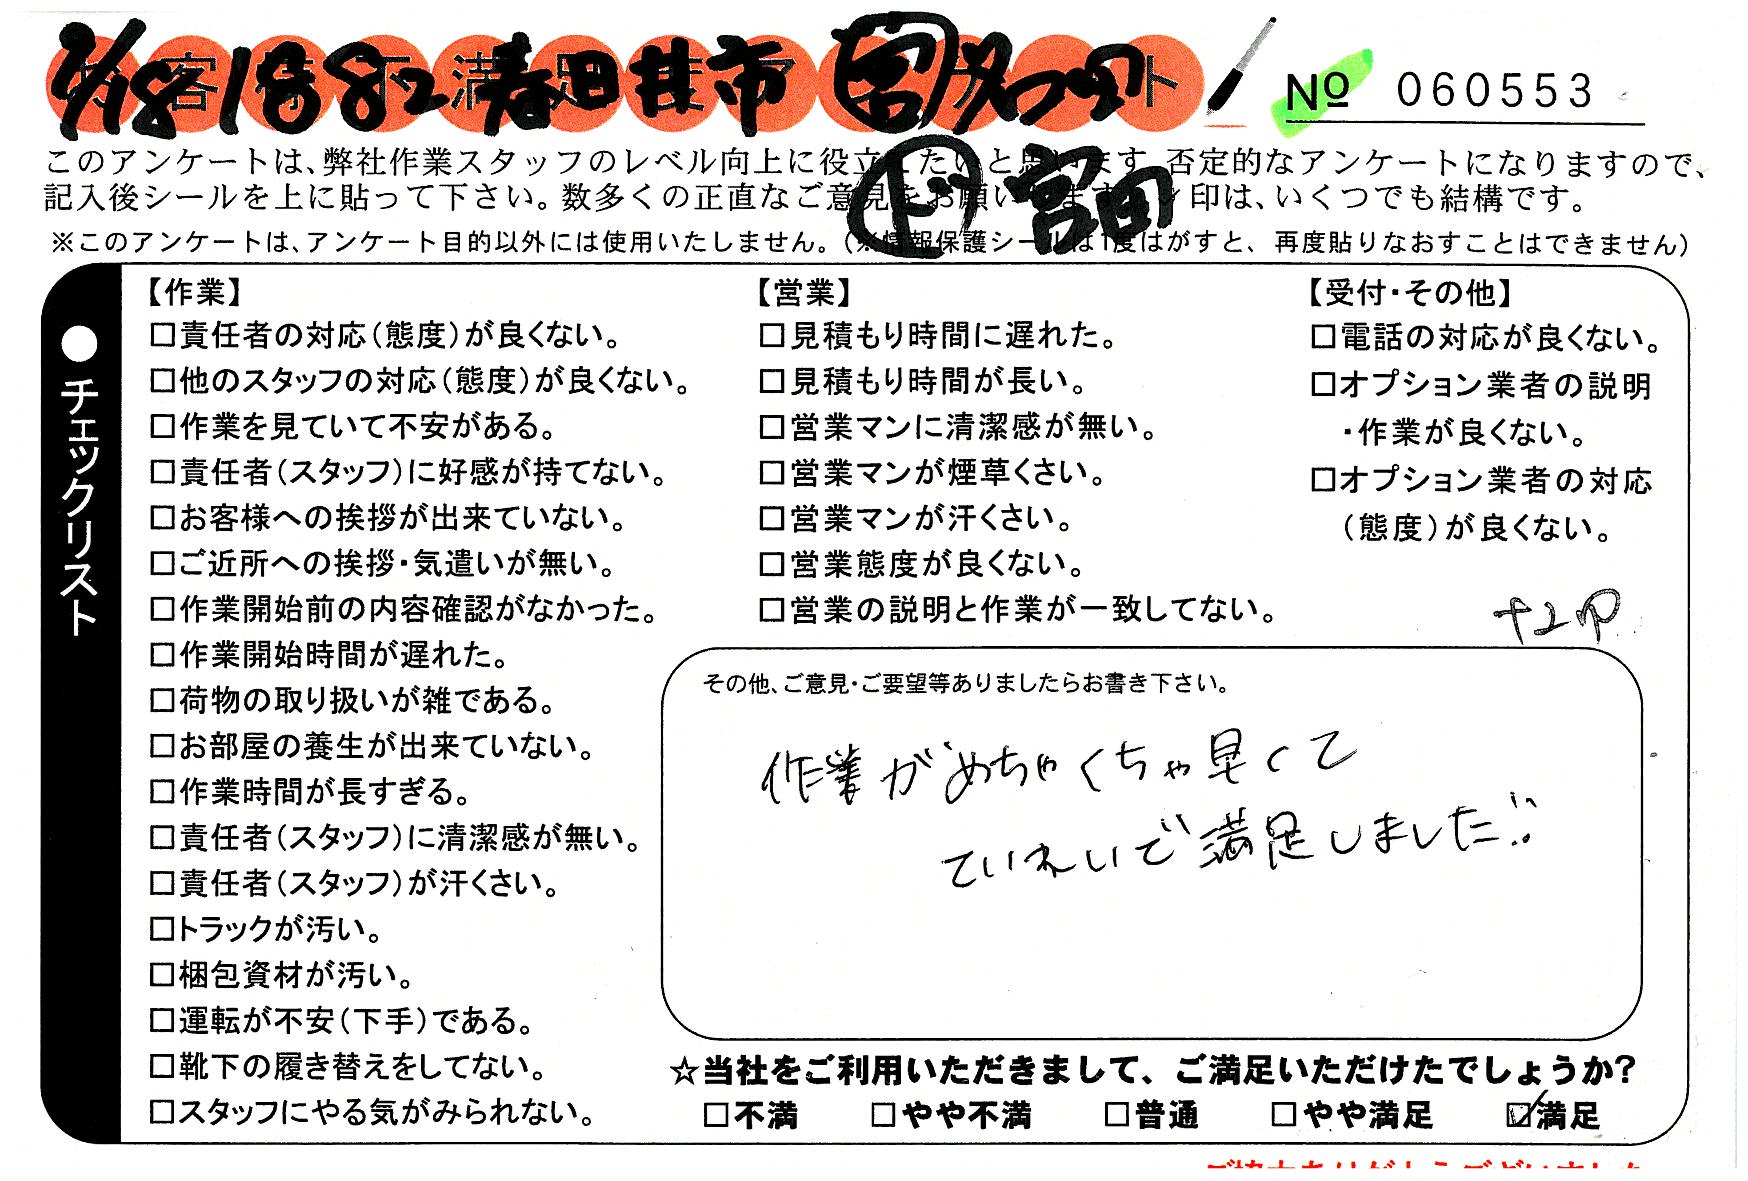 2/18 1882 春田井市
No 060553
このアンケートは、弊社作業スタッフのレベル向上に役立てたいと思います。否定的なアンケートになりますので、
記入後シールを上に貼って下さい。数多くの正直なご意見をお願いします。レ印は、いくつでも結構です。
※このアンケートは、アンケート目的以外には使用いたしません。(※情報保護シールは1度はがすと、再度貼りなおすことはできません)
●チェックリスト
【作業】
□責任者の対応(態度)が良くない。
□他のスタッフの対応(態度)が良くない。
□作業を見ていて不安がある。
□責任者(スタッフ)に好感が持てない。
□お客様への挨拶が出来ていない。
□ご近所への挨拶・気遣いが無い。
□作業開始前の内容確認がなかった。
□作業開始時間が遅れた。
□荷物の取り扱いが雑である。
□お部屋の養生が出来ていない。
□作業時間が長すぎる。
□責任者(スタッフ)に清潔感が無い。
□責任者(スタッフ)が汗くさい。
□トラックが汚い。
□梱包資材が汚い。
□運転が不安(下手)である。
□靴下の履き替えをしてない。
□スタッフにやる気がみられない。
【営業】
□見積もり時間に遅れた。
□見積もり時間が長い。
□営業マンに清潔感が無い。
□営業マンが煙草くさい。
□営業マンが汗くさい。
□営業態度が良くない。
□営業の説明と作業が一致してない。
【受付・その他】
□電話の対応が良くない。
□オプション業者の説明
・作業が良くない。
□オプション業者の対応
(態度)が良くない。
その他、ご意見・ご要望等ありましたらお書き下さい。
作業がめちゃくちゃ早くて
ていねいで満足しました
☆当社をご利用いただきまして、ご満足いただけたでしょうか?
□不満 □やや不満 □普通 □やや満足 ☑満足